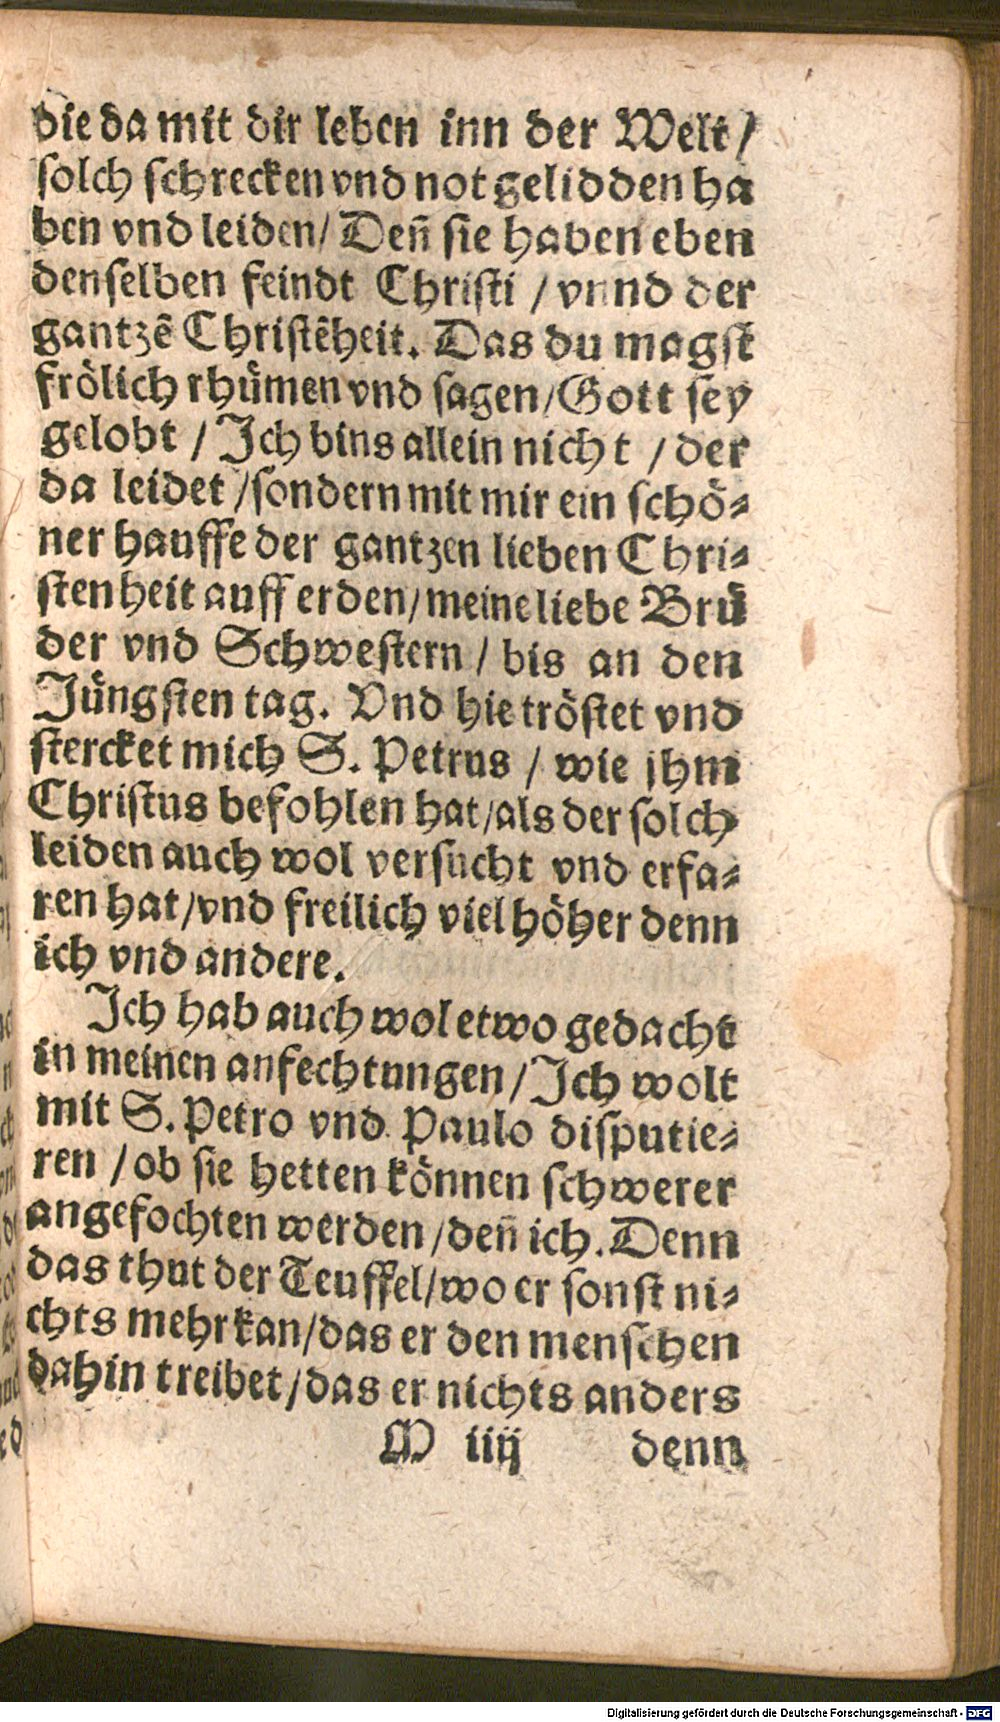 die da mit dir leben inn der Welt /
solch schrecken vnd not gelidden ha
ben vnd leiden / Deñ sie haben eben
denselben feindt Christi / vnnd der
gantzē Christēheit. Das du magst
frölich rhümen vnd sagen / Gott sey
gelobt / Ich bins allein nicht / der
da leidet / sondern mit mir ein schö⸗
ner hauffe der gantzen lieben Chri⸗
stenheit auff erden / meine liebe Brü
der vnd Schwestern / bis an den
Jüngsten tag. Vnd hie tröstet vnd
stercket mich S. Petrus / wie jhm
Christus befohlen hat / als der solch
leiden auch wol versucht vnd erfa⸗
ren hat / vnd freilich viel höher denn
ich vnd andere.
Ich hab auch wol etwo gedacht
in meinen anfechtungen / Ich wolt
mit S. Petro vnd Paulo disputie⸗
ren / ob sie hetten können schwerer
angefochten werden / deñ ich. Denn
das thut der Teuffel / wo er sonst ni⸗
chts mehr kan / das er den menschen
dahin treibet / das er nichts anders
M iiij denn
Digitalisierung gefördert durch die Deutsche Forschungsgemeinschaft - DFG